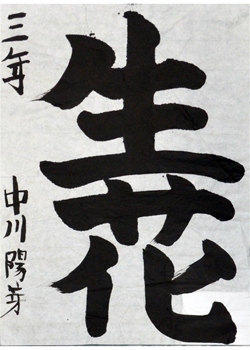 生花
三年
中川陽芽